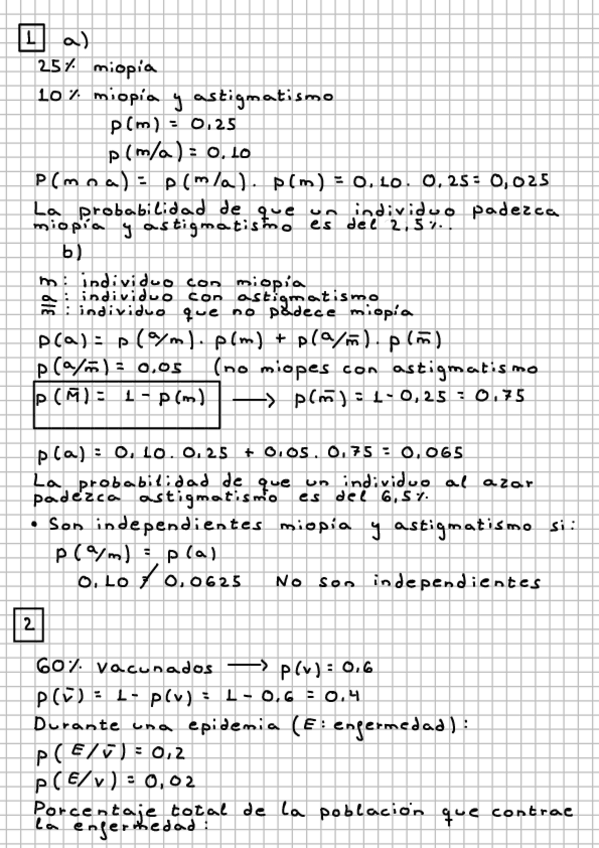 1 a)
25% miopía
10% miopía y astigmatismo
p(m) = 0,25
p(m/a) = 0,10
P(m ∩ a) = p(m/a). p(m) = 0,10. 0,25 = 0,025
La probabilidad de que un individuo padezca
miopía y astigmatismo es del 2,5%.
b)
m: individuo con miopía
a: individuo con astigmatismo
m̅: individuo que no padece miopía
p(a) = p(a/m). p(m) + p(a/m̅). p(m̅)
p(a/m̅) = 0,05 (no miopes con astigmatismo
p(M̅) = 1 - p(m) ⟶ p(m̅) = 1 - 0,25 = 0,75
p(a) = 0,10. 0,25 + 0,05. 0,75 = 0,065
La probabilidad de que un individuo al azar
padezca astigmatismo es del 6,5%
• Son independientes miopía y astigmatismo si:
p(a/m) = p(a)
0,10 ≠ 0,0625 No son independientes
2
60% vacunados ⟶ p(v) = 0,6
p(v̅) = 1 - p(v) = 1 - 0,6 = 0,4
Durante una epidemia (E: enfermedad):
p(E/v̅) = 0,2
p(E/v) = 0,02
Porcentaje total de la población que contrae
la enfermedad: